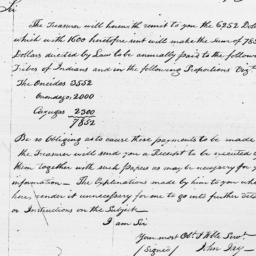 Sir
The Treasurer will herewith remit to you the 6,252 Doll
which with 1600 heretofore sent will make the Sum of 785
Dollars directed by Law to be annually paid to the followi
Tribes of Indians and in the following Proportions Viz.t
The Oneidas 3552
Onondago, 2000
Cayugas 2300
7852
Be so Obliging as to cause these payments to be made
the Treasurer will send you a Receipt to be executed
them together with such papers as may be necessary for y
information — The Explanations made by him to you whe
here, render it unnecessary for me to go into further deta
or Instructions on the Subject —
I am Sir
Your most Ob.t & Hble Serv.t
(Signed) John Jay —